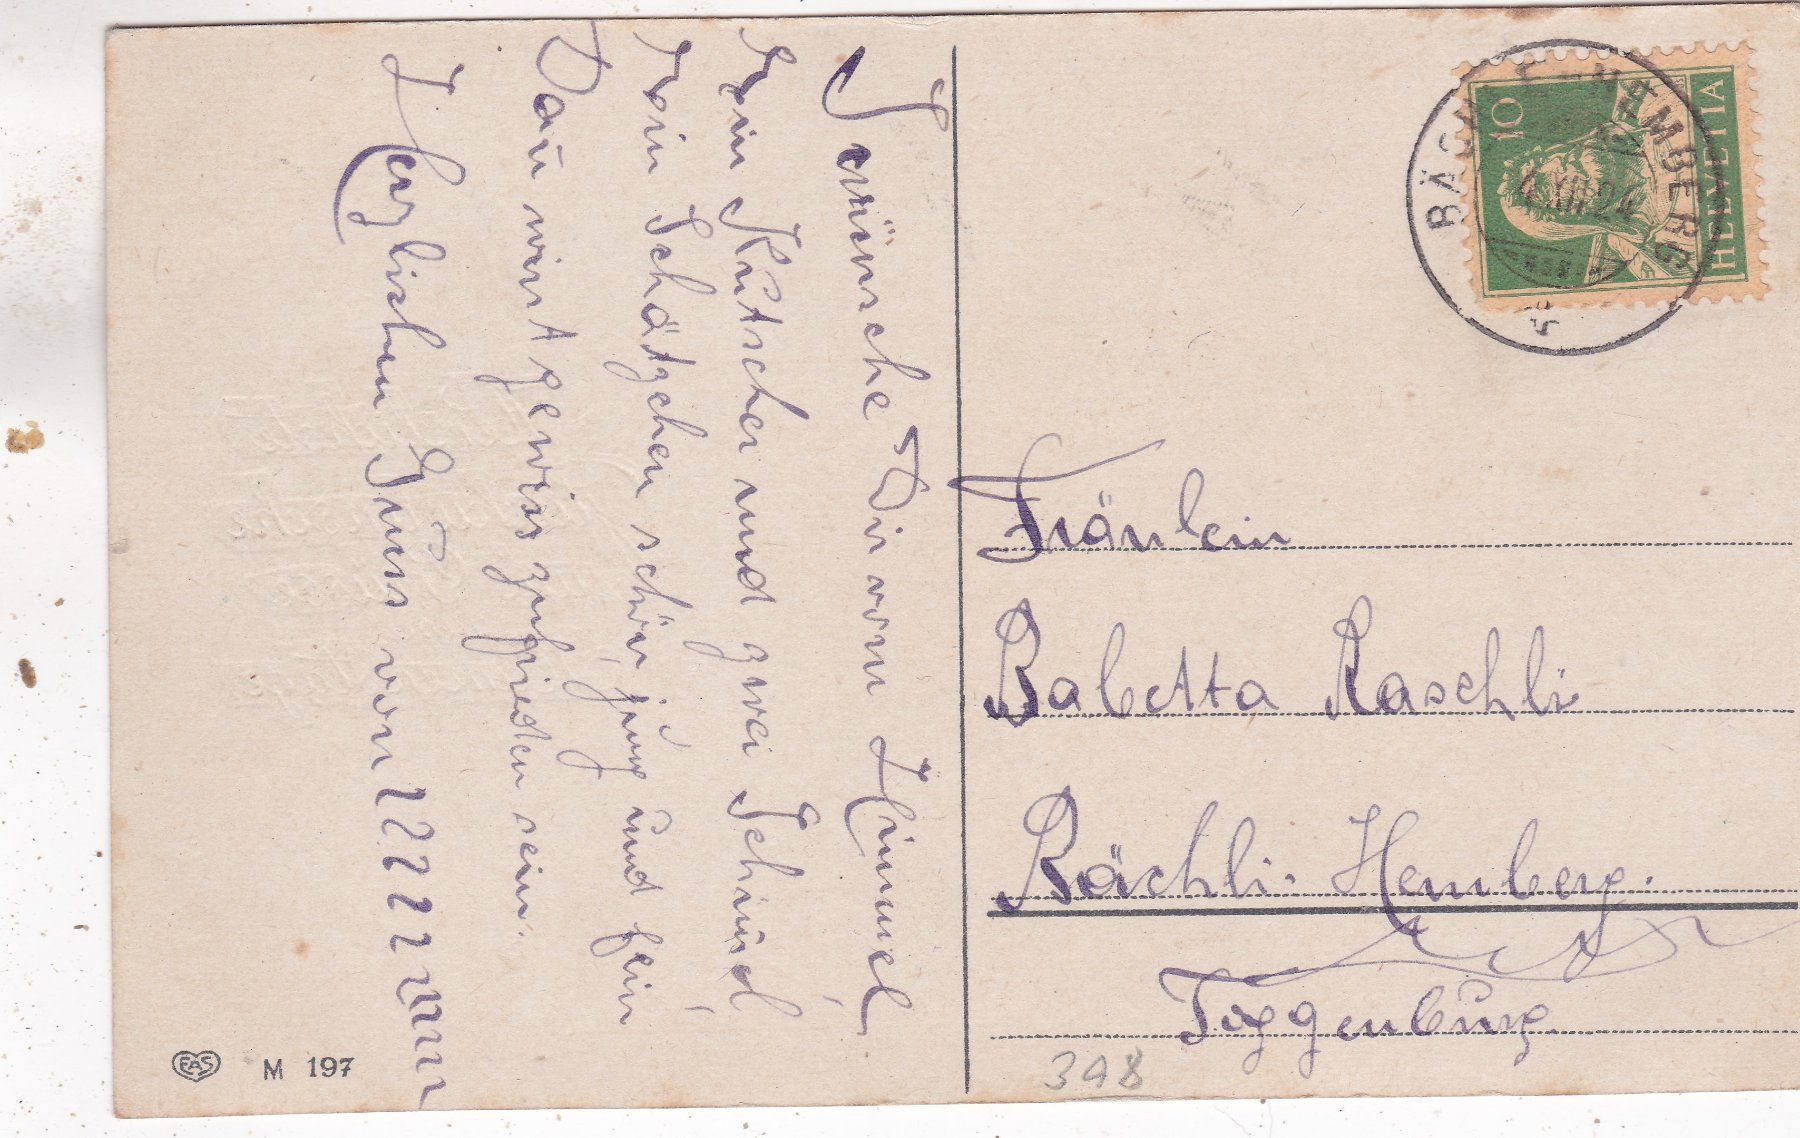 Iwünsche Dir vom Himmel
Ein Kutscher und zwei Schimel
Ein Schätzchen schön, jung und fein
Dan wirst gewiss zufrieden sein.
Herzlichen Gruss von
Fräulein
Babetta Raschli
Bächli. Hemberg.
Toggenburg
398
HELVETIA
10
HEMBERG
XII 24
EAS
M 197